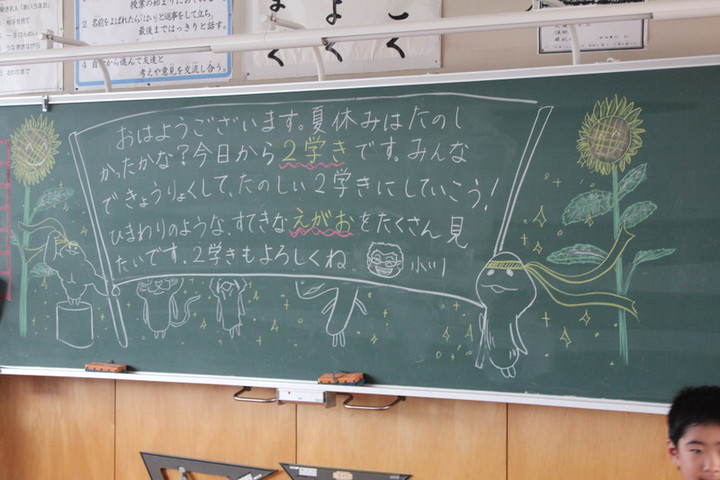 2 名前をよばれたら「はい」と返事をして立ち、
最後まではっきりと話す。
進んで友達と
考えや意見を交流し合う。
おはようございます。夏休みはたのし
かったかな？今日から２学きです。みんな
できょうりょくして、たのしい２学きにしていこう！
ひまわりのような、すてきなえがおをたくさん見
たいです。２学きもよろしくね 小川